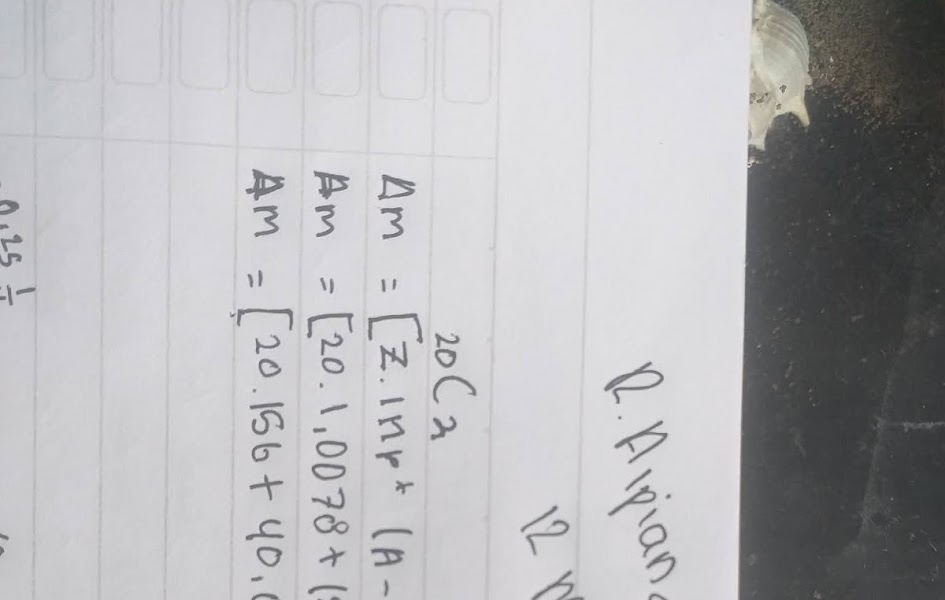 R. Alpian
12
20Ca
Δm = [Z.mp + (A-
Δm = [20.1,0078 + (
Δm = [20.156 + 40,
0,25